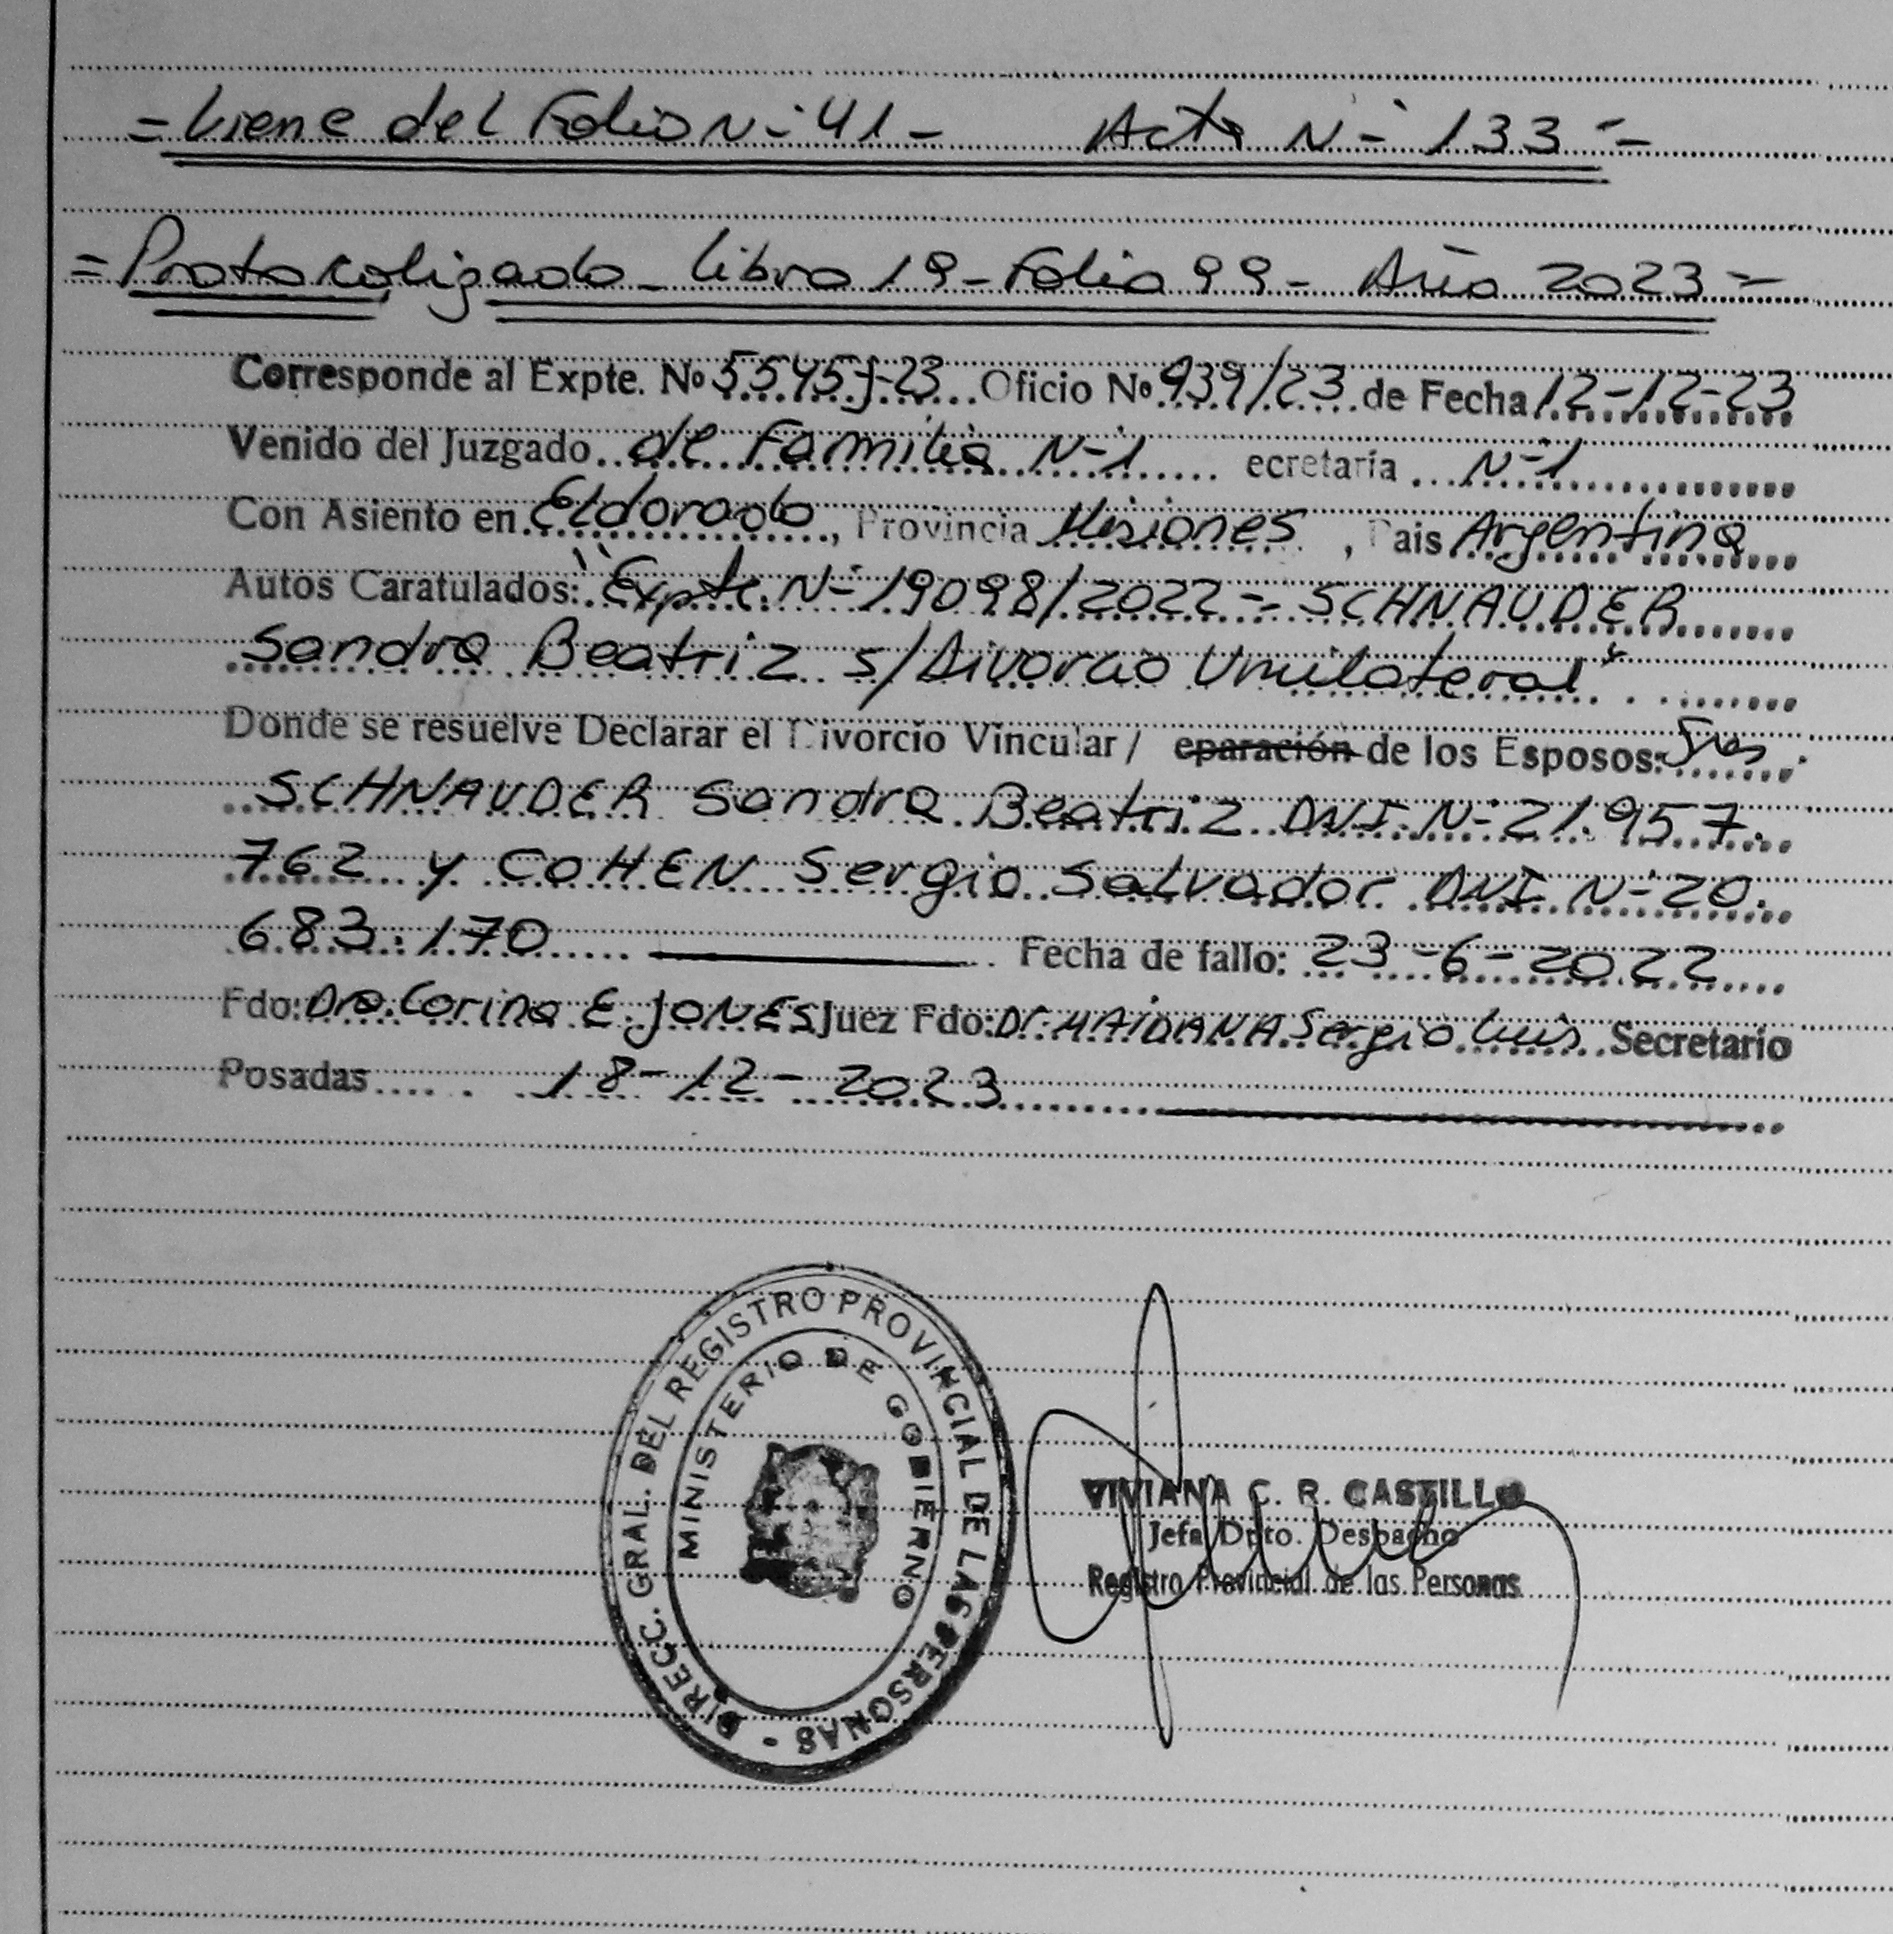 = Viene del Folio N-° 41 - Acta N-° 133 =
= Protocolizado - Libro 19 - Folio 99 - Año 2023 =
Corresponde al Expte. Nº 5545-J-23 Oficio Nº 939/23 de Fecha 12-12-23
Venido del Juzgado de Familia N-°1 ecretaría N-°1
Con Asiento en Eldorado, Provincia Misiones, Pais Argentina
Autos Caratulados: "Expte. N-° 19098/2022 - SCHNAUDER
Sandra Beatriz s/Divorcio Unilateral"
Donde se resuelve Declarar el Divorcio Vincular / eparación de los Esposos: Sres.
SCHNAUDER Sandra Beatriz DNI N-° 21.957.
762 y COHEN Sergio Salvador DNI N-° 20.
683.170 Fecha de fallo: 23-6-2022
Fdo: Dra. Corina E. JONES Juez Fdo: Dr. MAIDANA Sergio Luis Secretario
Posadas 18-12-2023
DIRECC. GRAL. DEL REGISTRO PROVINCIAL DE LAS PERSONAS -
MINISTERIO DE GOBIERNO
VIVIANA C. R. CASTILLO
Jefa Dpto. Despacho
Registro Provincial de las Personas